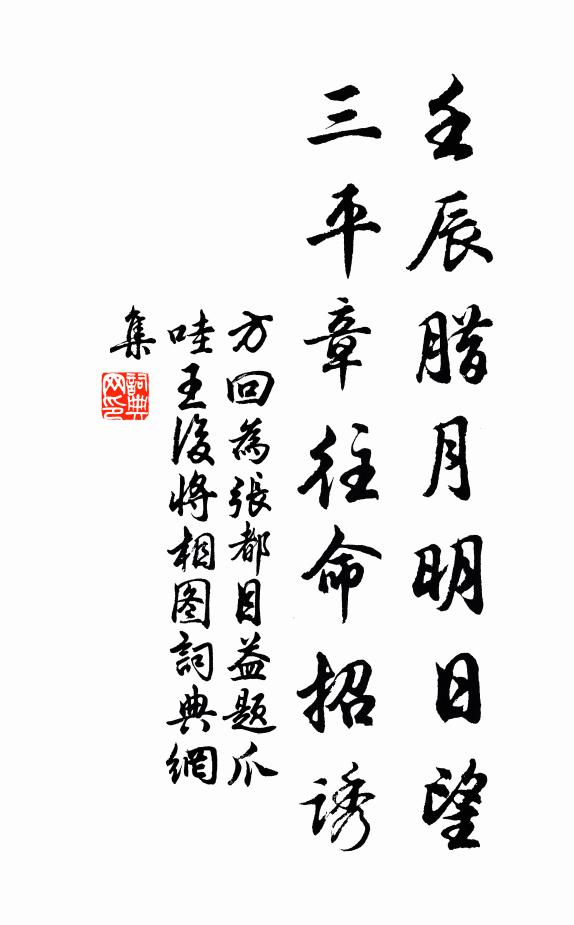 壬辰腊月明日望
三平章往命招誘
方回為張都目益题爪
哇王後将相图詞典網
集
詞典网印